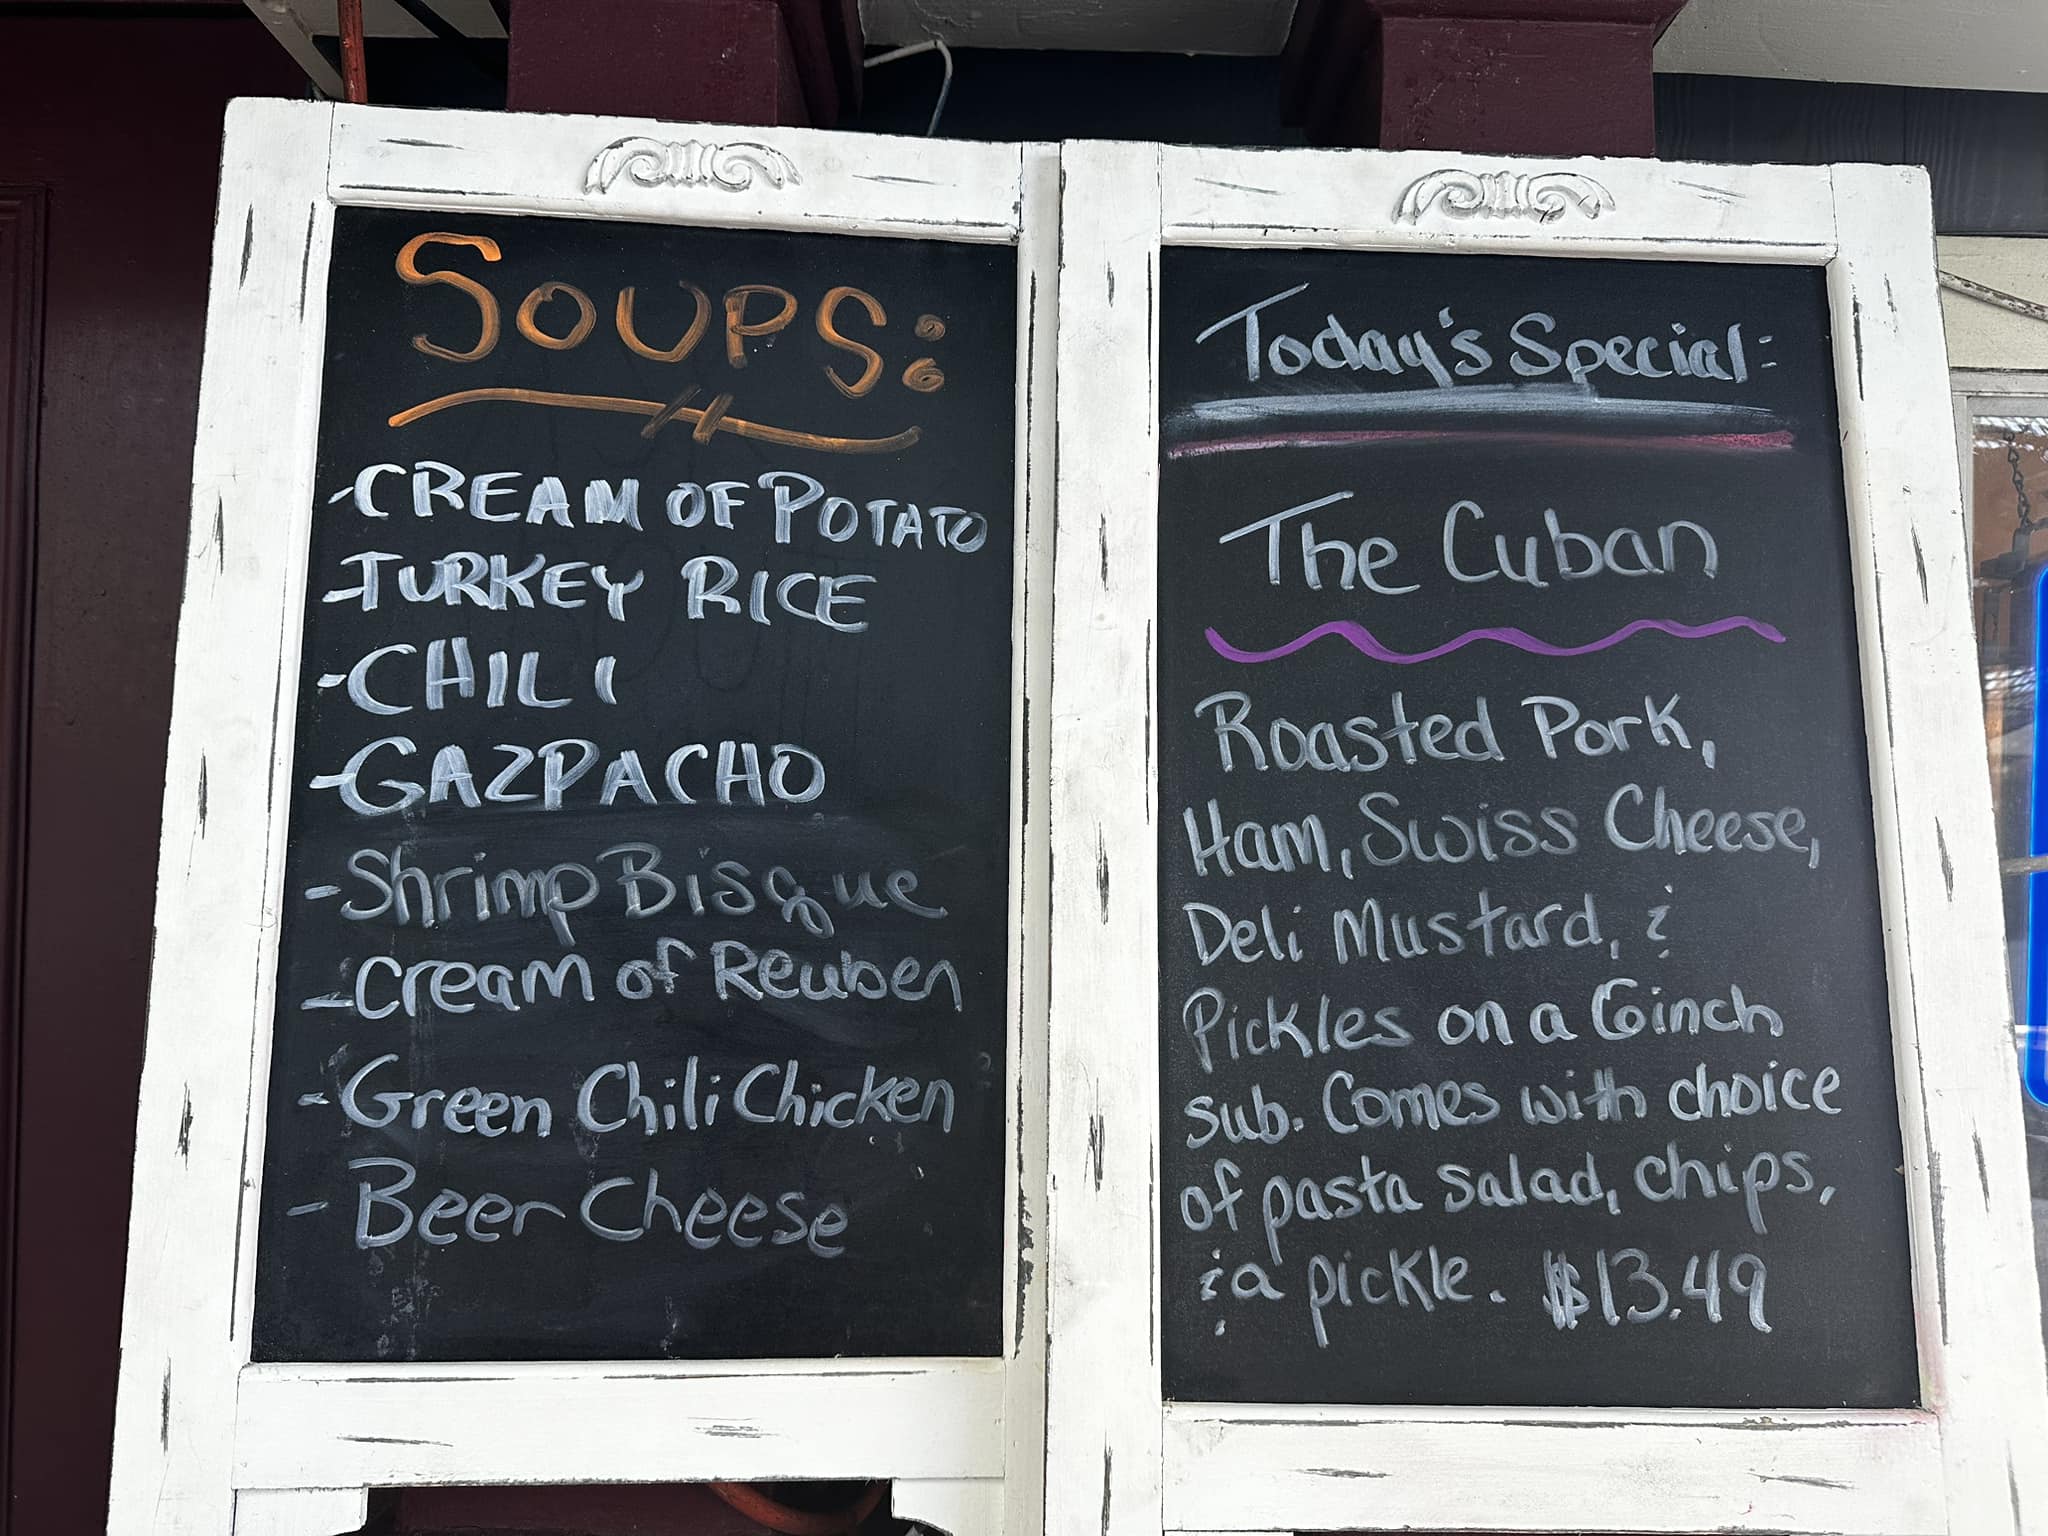 SOUPS:
-CREAM OF POTATO
-TURKEY RICE
-CHILI
-GAZPACHO
-Shrimp Bisque
-Cream of Reuben
-Green Chili Chicken
-Beer Cheese
Today's Special:
The Cuban
Roasted Pork,
Ham, Swiss Cheese,
Deli Mustard, &
Pickles on a 6inch
sub. Comes with choice
of pasta salad, chips,
& a pickle. $13.49